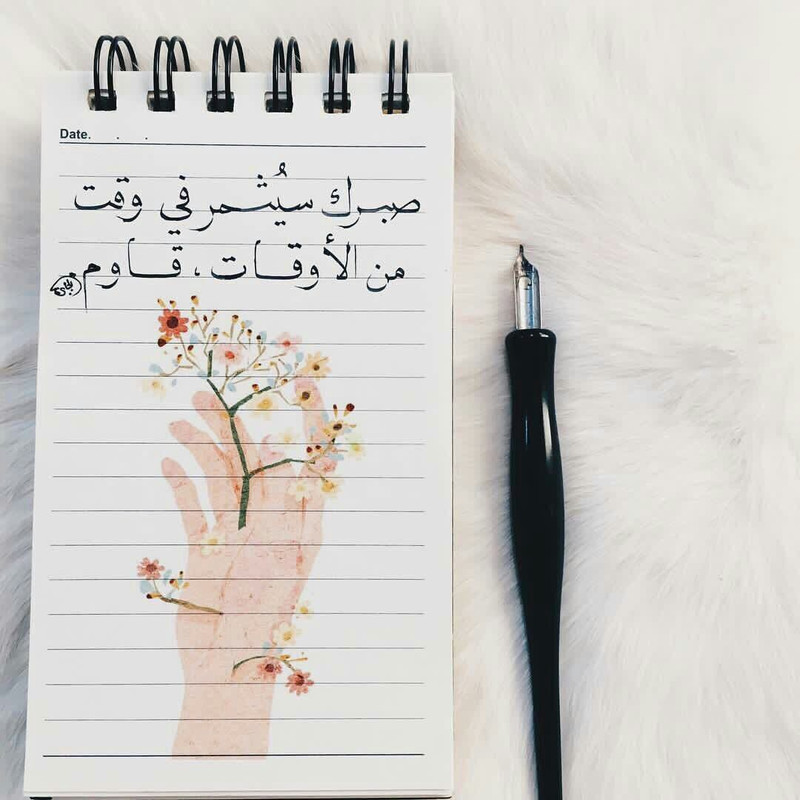 Date. . .
صبرك سيُثمر في وقت
من الأوقات، قاوم.